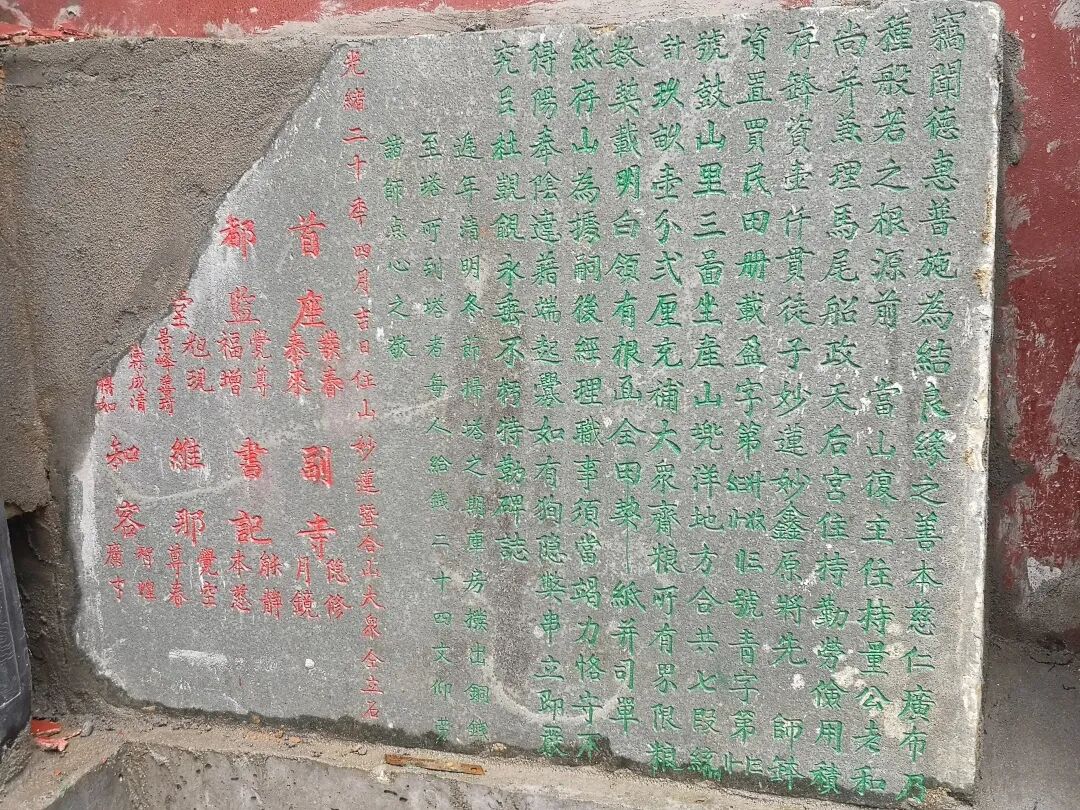 竊聞德惠普施為結良緣之善本慈仁廣布乃
種般若之根源前 當山復主住持量公老和
尚并兼理馬尾船政天后宮住持勤勞儉用積
存鉢資壹仟貫徒子妙蓮妙鑫原將先 師鉢
資置買民田册載盈字第號青字第
號鼓山里三啚坐産山兠洋地方合共七段編
計玖畝壹分弍厘充補大衆齋粮所有界限粮
数契載明白領有根面全田契一紙并司單
紙存山為據嗣後經理職事須當竭力恪守不
得陽奉陰違藉端起釁如有狥隱獘串立即嚴
究㠯杜覬覦永垂不朽特勒碑誌
迨年清明冬節掃塔之期庫房撥出銅錢
至塔所到塔者每人給錢二十四文仰
諸師点心之敬
光緒二十年四月吉日住山妙蓮暨合山大衆仝立石
首座 春 泰來 副寺 隐修 月鏡
都監 覺尊 福增 書記 能静 本慈
室 旭現 景峰 維那 覺空 尊春
成清 知客 智煌 廣